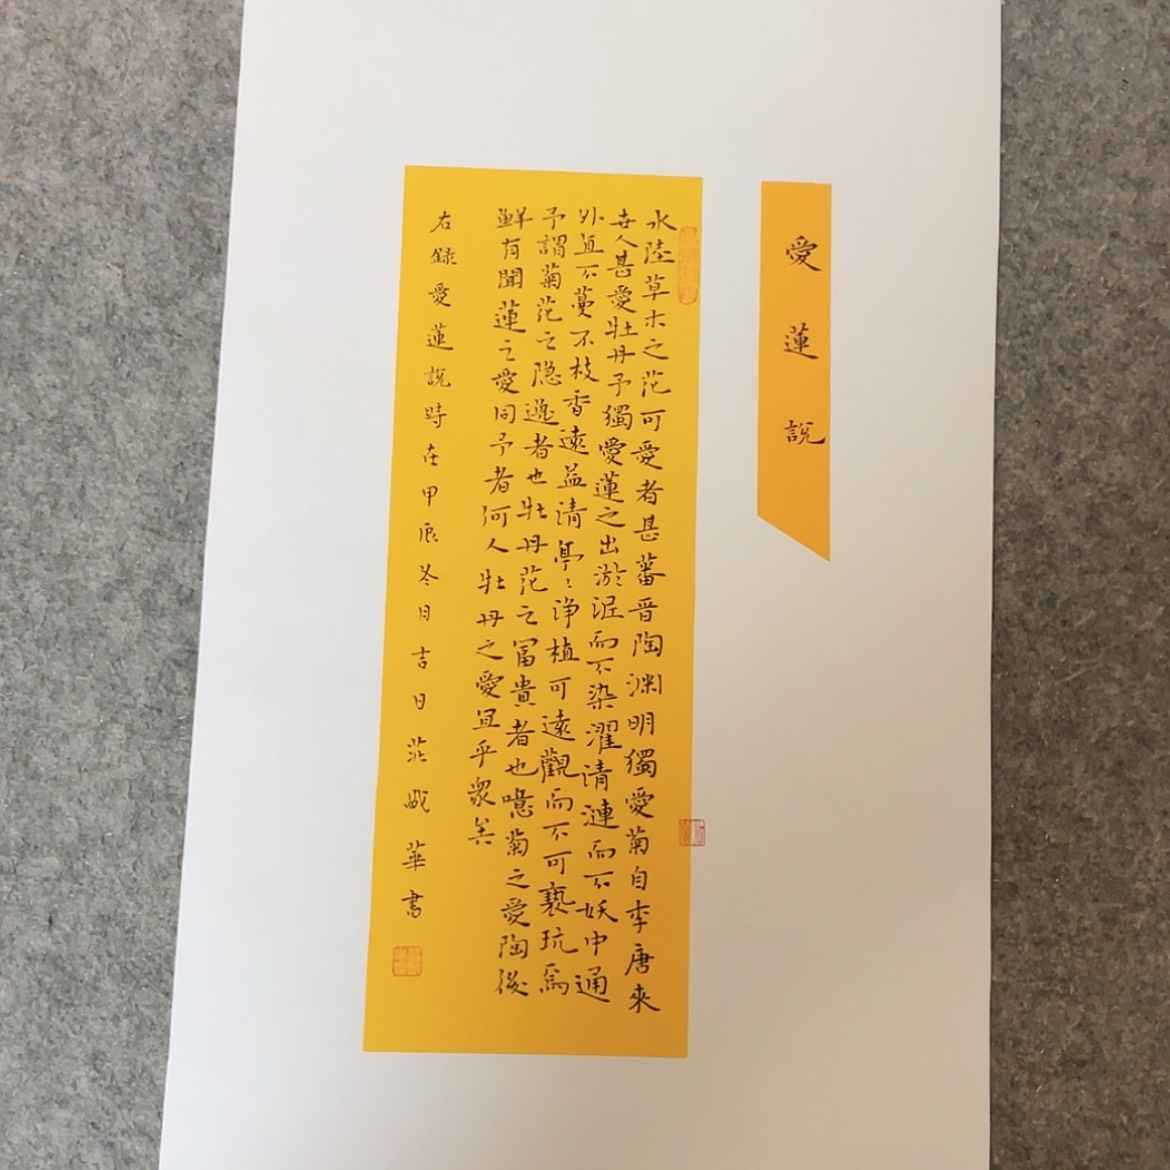 愛蓮說
水陸草木之花可愛者甚蕃晉陶渊明獨愛菊自李唐來
世人甚愛牡丹予獨愛蓮之出淤泥而不染濯清漣而不妖中通
外直不蔓不枝香遠益清亭〻淨植可遠觀而不可褻玩焉
予謂菊花之隐逸者也牡丹花之富貴者也噫菊之愛陶後
鮮有聞蓮之愛同予者何人牡丹之愛宜乎眾矣
右録愛蓮說時在甲辰冬月吉日莊華書